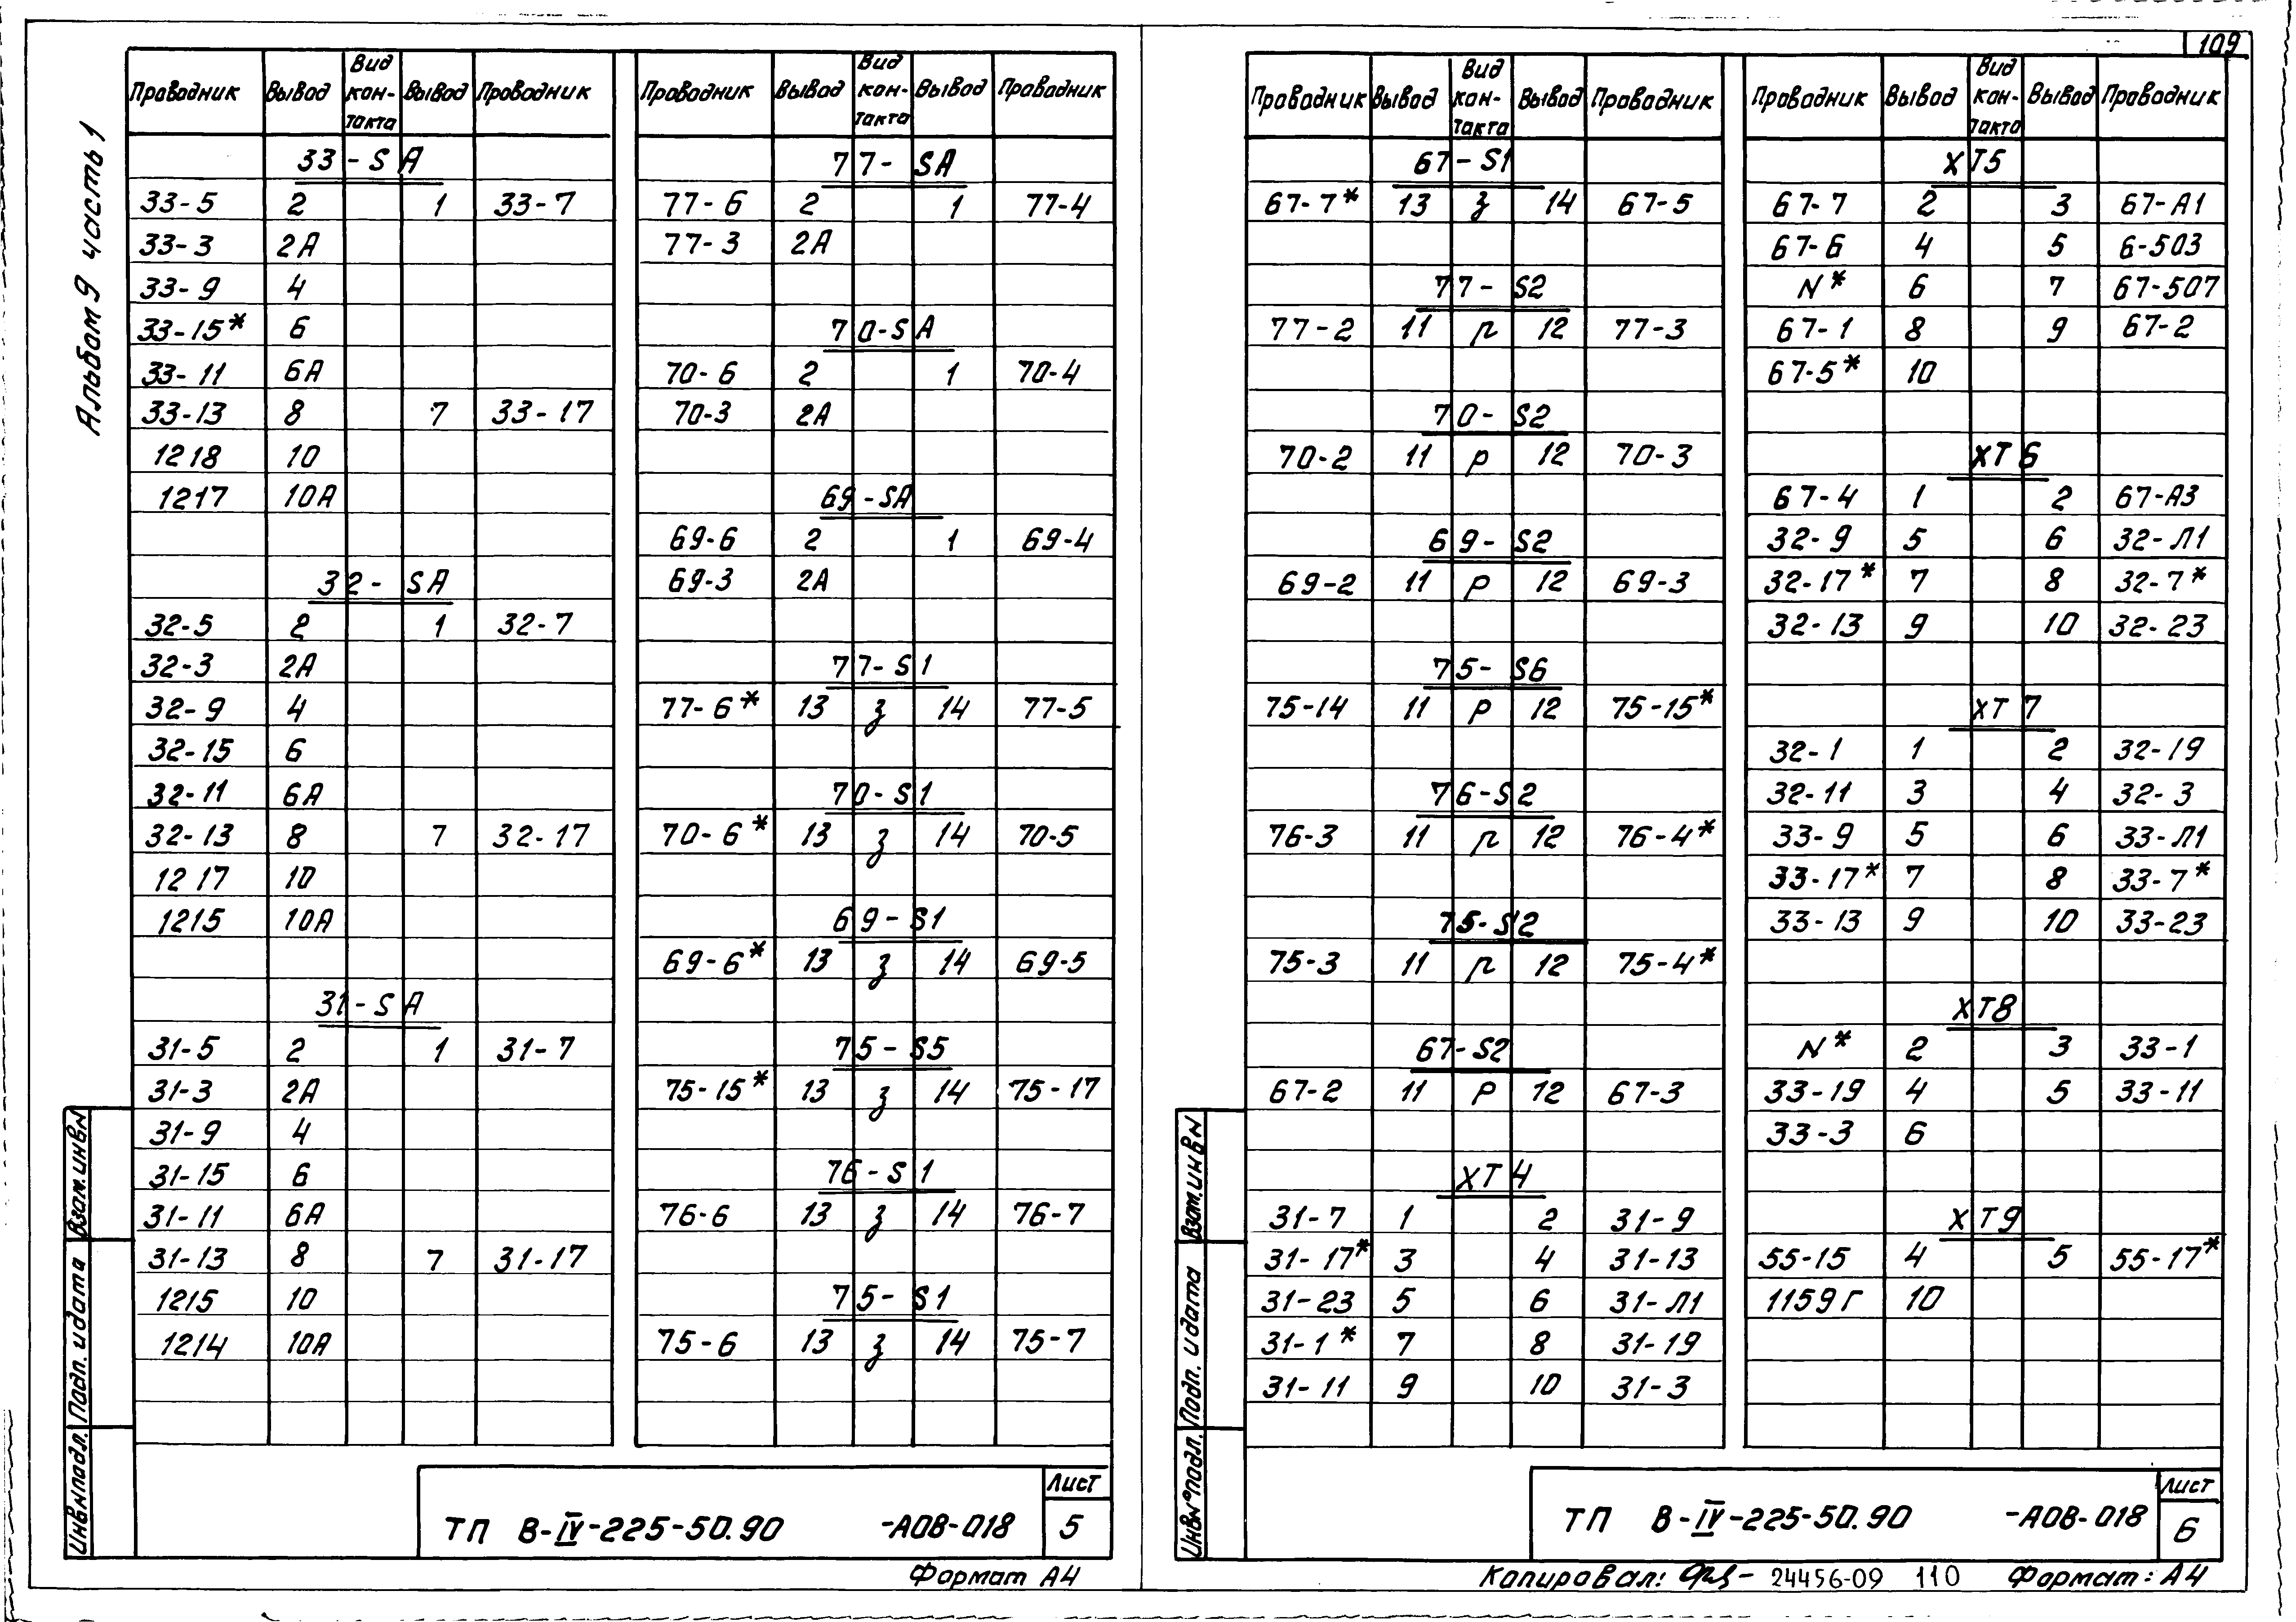 109
Альбом 9 часть 1
Проводник Вывод Вид контакта Вывод Проводник
33-SA
33-5 2 1 33-7
33-3 2А
33-9 4
33-15* 6
33-11 6А
33-13 8 7 33-17
1218 10
1217 10А
32-SA
32-5 2 1 32-7
32-3 2А
32-9 4
32-15 6
32-11 6А
32-13 8 7 32-17
1217 10
1215 10А
31-SA
31-5 2 1 31-7
31-3 2А
31-9 4
31-15 6
31-11 6А
31-13 8 7 31-17
1215 10
1214 10А
Проводник Вывод Вид контакта Вывод Проводник
77-SA
77-6 2 1 77-4
77-3 2А
70-SA
70-6 2 1 70-4
70-3 2А
69-SA
69-6 2 1 69-4
69-3 2А
77-S1
77-6* 13 з 14 77-5
70-S1
70-6* 13 з 14 70-5
69-S1
69-6* 13 з 14 69-5
75-S5
75-15* 13 з 14 75-17
76-S1
76-6 13 з 14 76-7
75-S1
75-6 13 з 14 75-7
Инв№подл. Подп. и дата Взам.инв№
ТП В-IV-225-50.90 -АОВ-018
Лист
5
Формат А4
Проводник Вывод Вид контакта Вывод Проводник
67-S1
67-7* 13 з 14 67-5
77-S2
77-2 11 р 12 77-3
70-S2
70-2 11 р 12 70-3
69-S2
69-2 11 р 12 69-3
75-S6
75-14 11 р 12 75-15*
76-S2
76-3 11 р 12 76-4*
75-S2
75-3 11 р 12 75-4*
67-S2
67-2 11 р 12 67-3
ХТ4
31-7 1 2 31-9
31-17* 3 4 31-13
31-23 5 6 31-Л1
31-1* 7 8 31-19
31-11 9 10 31-3
Проводник Вывод Вид контакта Вывод Проводник
ХТ5
67-7 2 3 67-А1
67-6 4 5 6-503
N* 6 7 67-507
67-1 8 9 67-2
67-5* 10
ХТ6
67-4 1 2 67-А3
32-9 5 6 32-Л1
32-17* 7 8 32-7*
32-13 9 10 32-23
ХТ7
32-1 1 2 32-19
32-11 3 4 32-3
33-9 5 6 33-Л1
33-17* 7 8 33-7*
33-13 9 10 33-23
ХТ8
N* 2 3 33-1
33-19 4 5 33-11
33-3 6
ХТ9
55-15 4 5 55-17*
1159Г 10
Инв№подл. Подп. и дата Взам.инв№
ТП В-IV-225-50.90 -АОВ-018
Лист
6
Копировал: 24456-09 110 Формат: А4